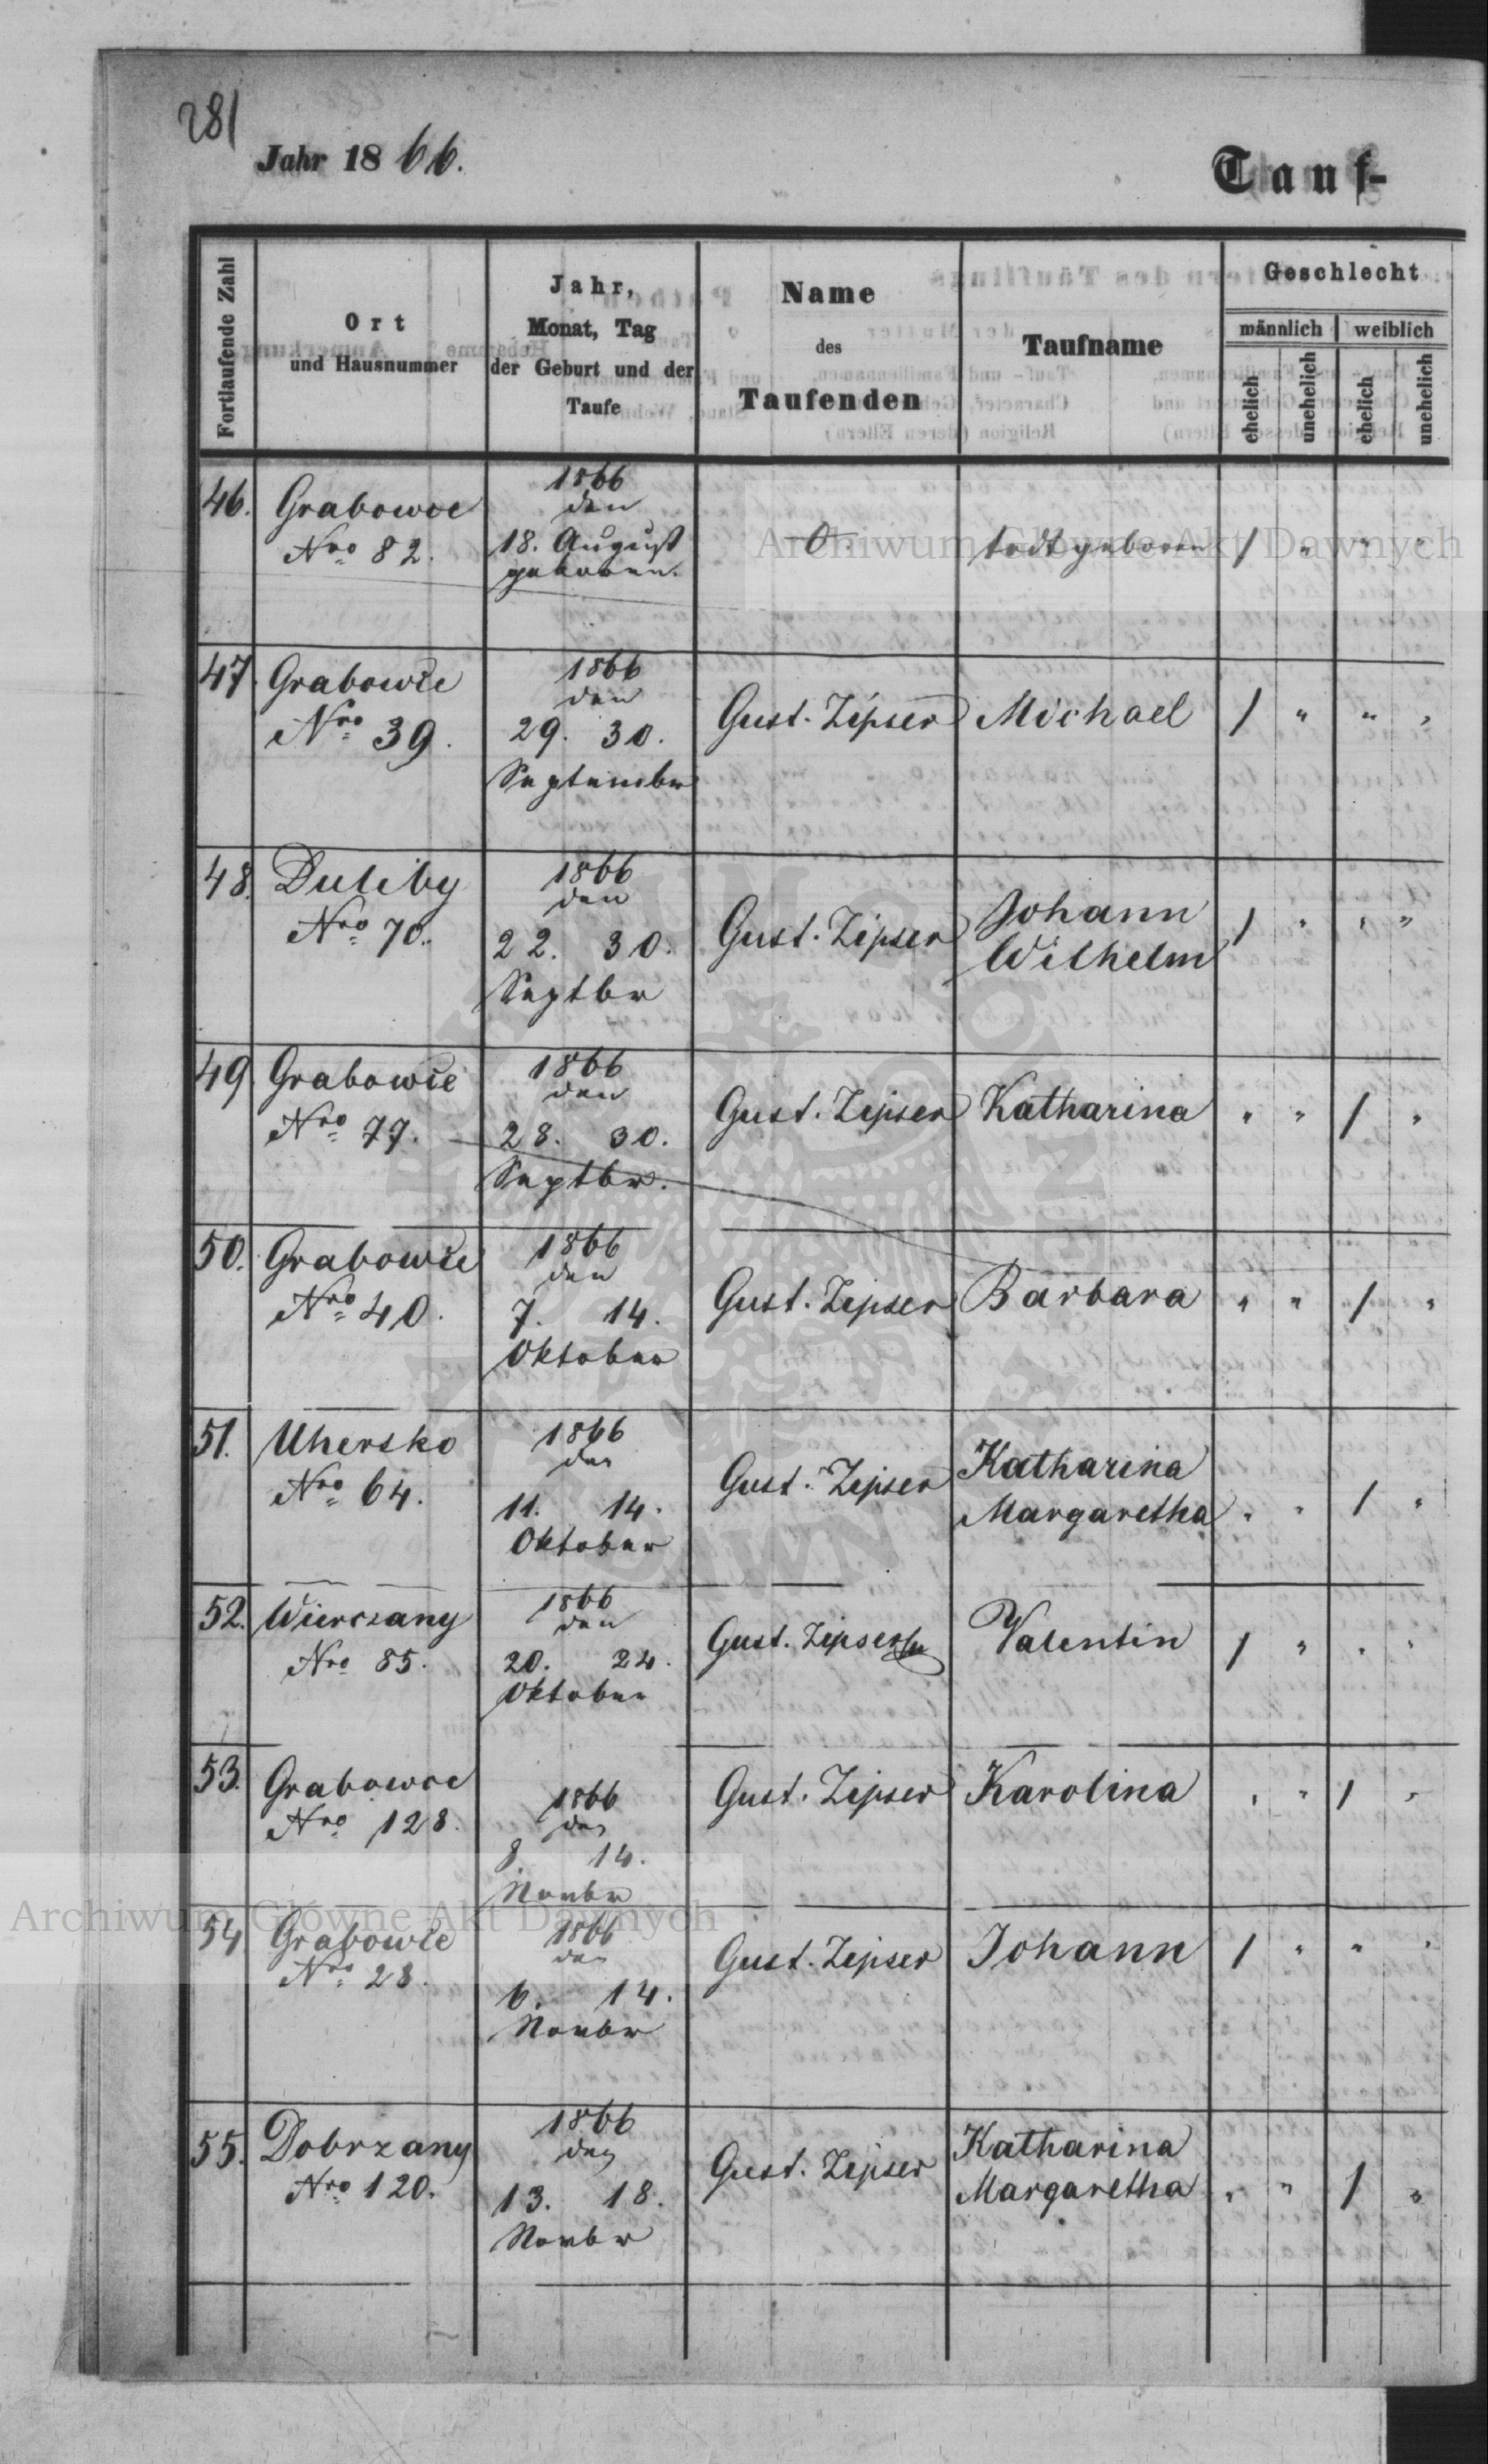 281
Jahr 1866.
Tauf-
Fortlaufende Zahl
Ort
und Hausnummer
Jahr,
Monat, Tag
der Geburt und der
Taufe
Name
des
Taufenden
Taufname
Geschlecht
männlich
weiblich
ehelich
unehelich
ehelich
unehelich
46. Grabowce
Nro 82.
1866
den
18. August
geboren.
-0-
todt geboren
/ " " "
47. Grabowce
Nro 39.
1866
den
29. 30.
September
Gust. Zipser
Michael
/ " " "
48. Duliby
Nro 70.
1866
den
22. 30.
Septbr
Gust. Zipser
Johann
Wilhelm
/ " " "
49. Grabowce
Nro 77.
1866
den
28. 30.
Septbr.
Gust. Zipser
Katharina
" " / "
50. Grabowce
Nro 40.
1866
den
7. 14.
Oktober
Gust. Zipser
Barbara
" " / "
51. Uhersko
Nro 64.
1866
den
11. 14.
Oktober
Gust. Zipser
Katharina
Margaretha
" " / "
52. Wierczany
Nro 85.
1866
den
20. 24.
Oktober
Gust. Zipser
Valentin
/ " " "
53. Grabowce
Nro 128.
1866
den
8. 14.
Novbr
Gust. Zipser
Karolina
" " / "
54 Grabowce
Nro 28.
1866
den
6. 14.
Novbr
Gust. Zipser
Johann
/ " " "
55. Dobrzany
Nro 120.
1866
den
13. 18.
Novbr
Gust. Zipser
Katharina
Margaretha
" " / "
Archiwum Główne Akt Dawnych
Archiwum Główne Akt Dawnych